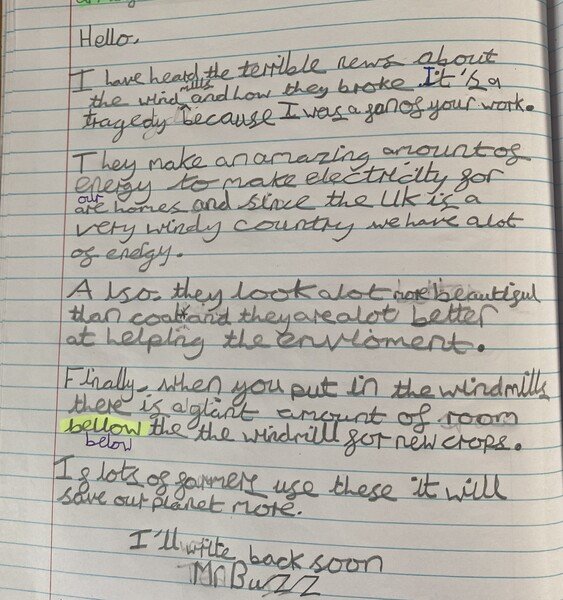 Hello,
I have heard the terrible news about
the wind mills and how they broke It's a
tragedy because I was a fan of your work.
They make an amazing amount of
energy to make electricity for
our
are homes and since the UK is a
very windy country we have alot
of energy.
Also, they look alot more beautiful
than coal and they are alot better
at helping the enviroment.
Finally, when you put in the windmills
there is a giant amount of room
bellow the the windmill for new crops.
below
If lots of farmers use these it will
save our planet more.
I'll write back soon
Mr Buzz